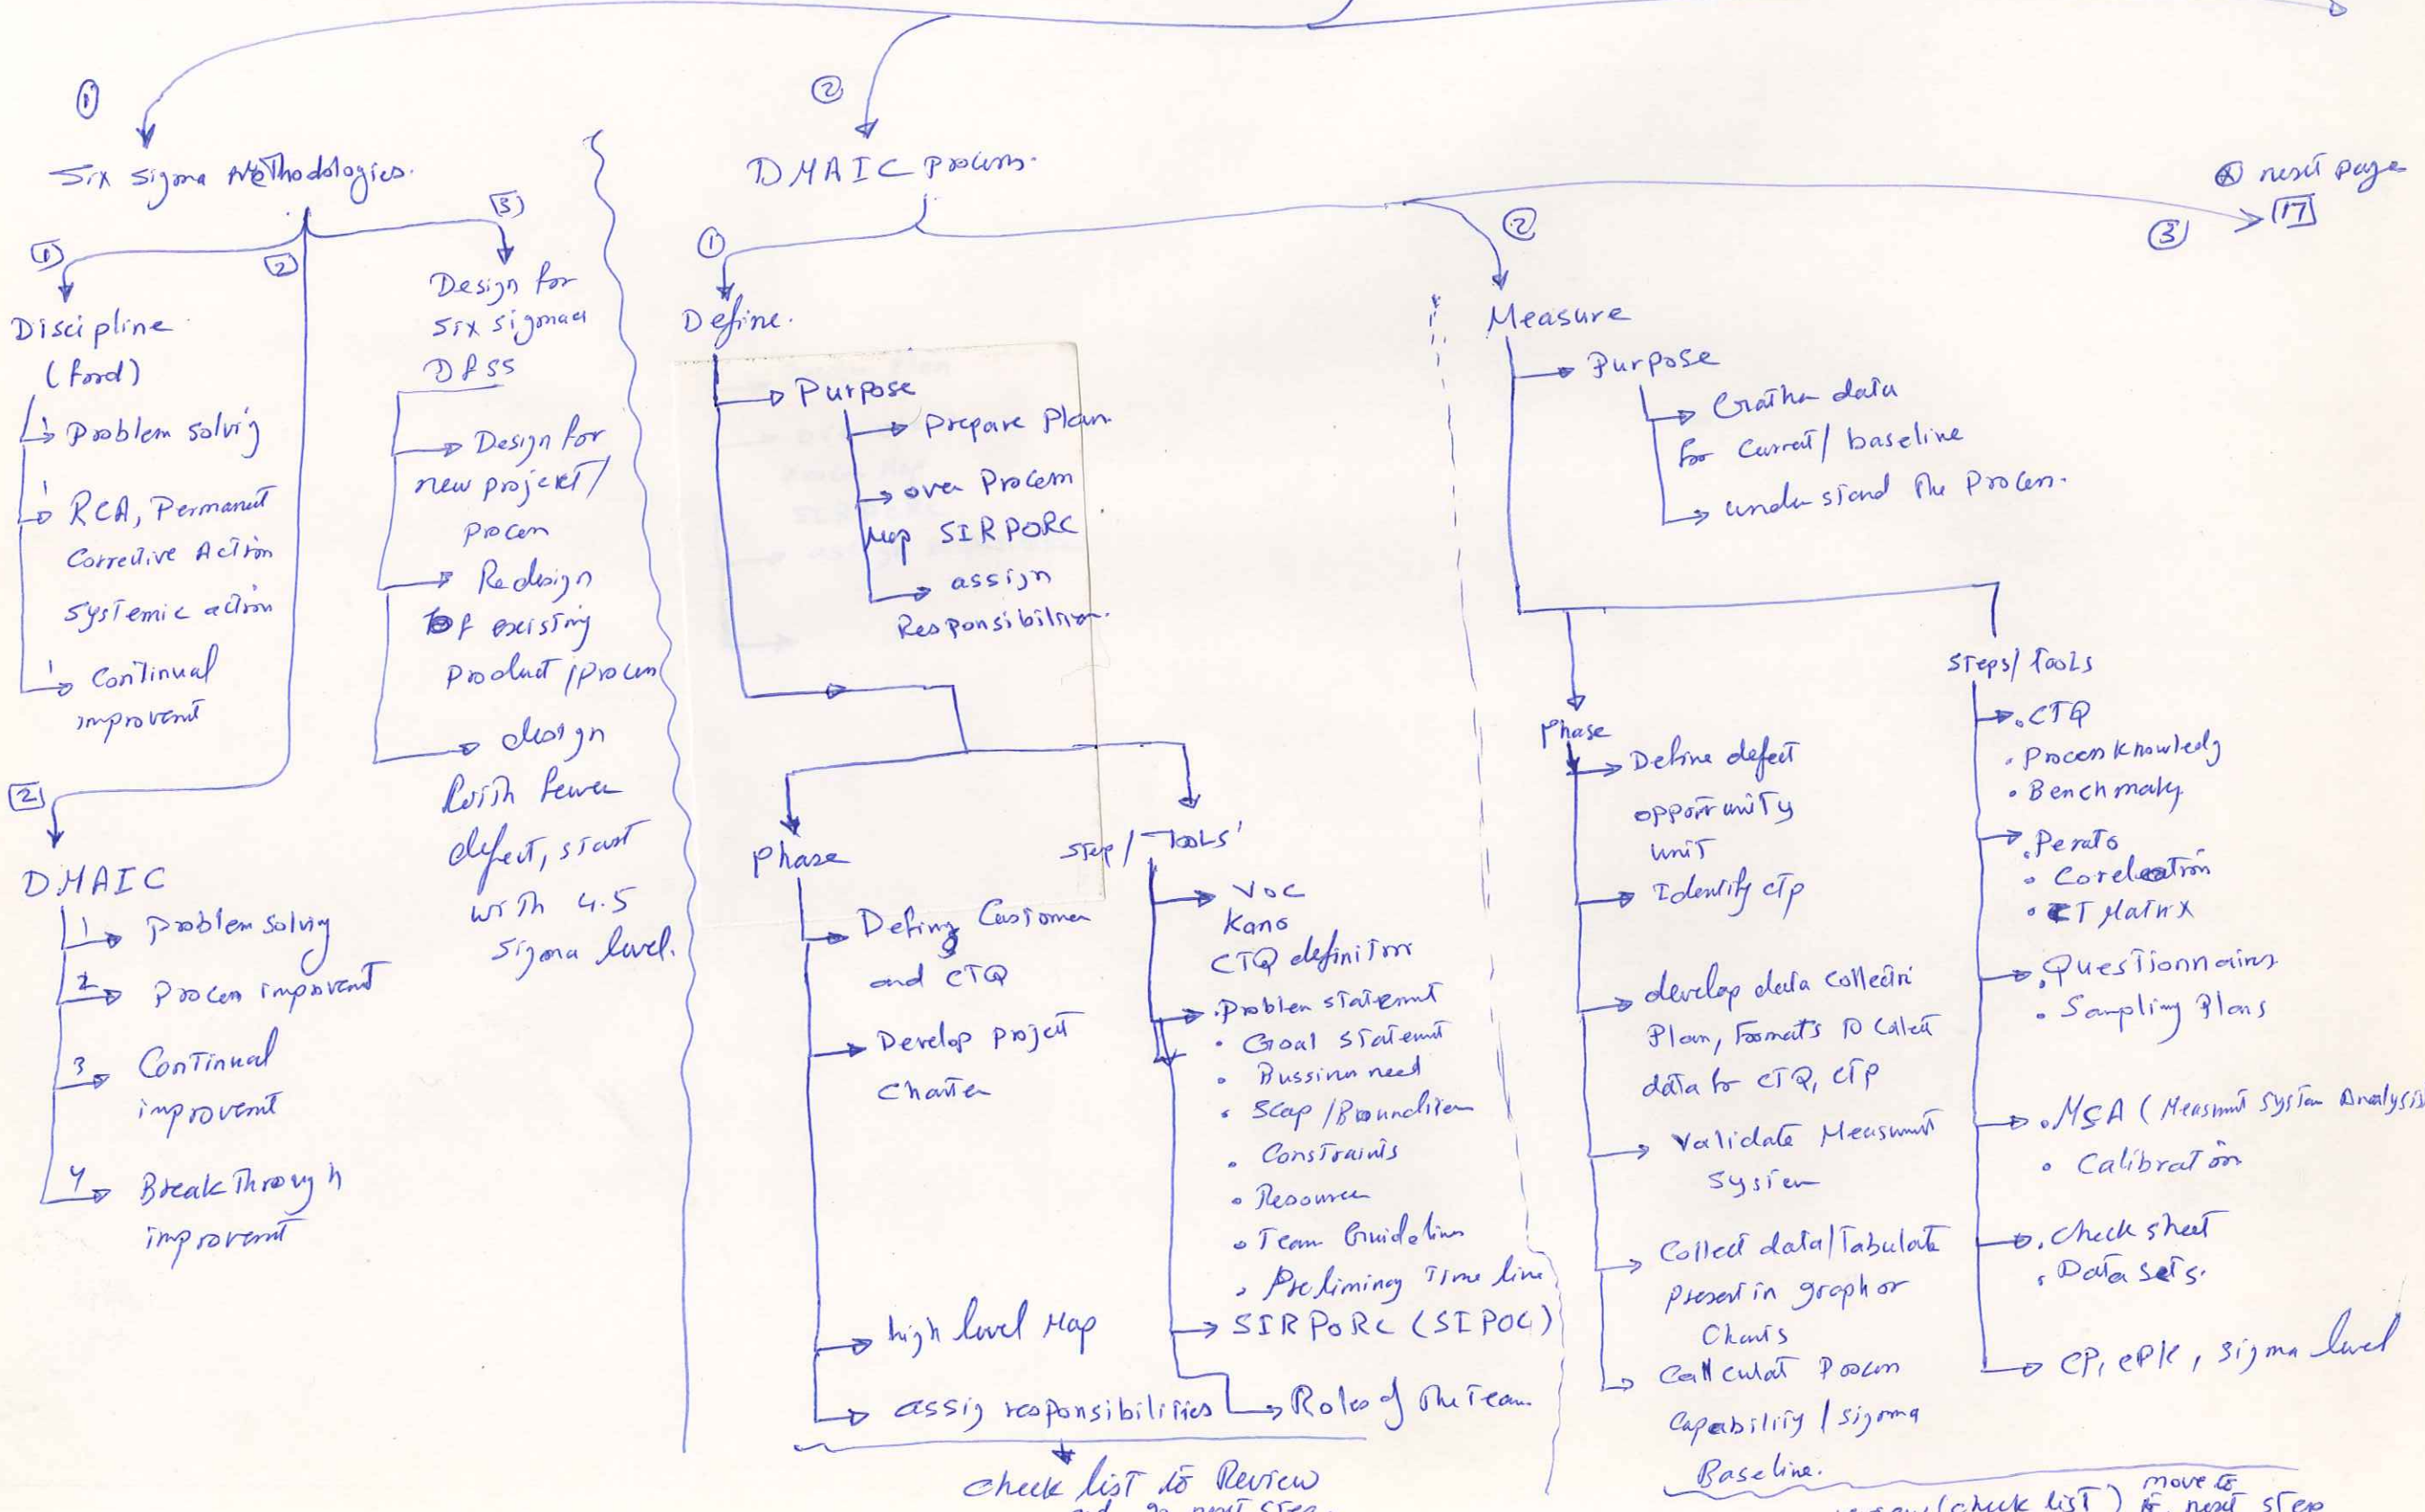 ①
②
Six Sigma Methodologies.
DMAIC Process.
⊗ next page
③ 17
1
2
3
Discipline
(Ford)
1 Problem solvig
1 RCA, Permanent
Corrective Action
Systemic action
1 Continual
improvemt
2
DMAIC
1 Problem solvig
2 Process improvemt
3 Continual
improvemt
4 Break Through
improvemt
Design for
Six sigma
DFSS
Design for
new project/
process
Redesign
of existing
Product / process
design
with fewer
defect, start
with 4.5
Sigma level.
①
Define.
Purpose
Prepare Plan.
over Process
Map SIRPORC
assign
Responsibilities.
Phase
Defing Customer
and CTQ
Develop Project
Charter
high level Map
assig responsibilities
Step/Tools
VOC
Kano
CTQ definition
• Problem statemnt
• Goal statemnt
• Bussines need
• Scop / Boundaries
• Constraints
• Resources
• Team Guidelines
• Preliminay Time line
SIRPORC (SIPOC)
Roles of the Team
check list to Review
②
Measure
Purpose
Gather data
for Current / baseline
understand the Process.
Phase
Define defect
opportunity
unit
Identify CTP
develop data collection
Plan, Formats to Collect
data for CTQ, CTP
Validate Measurmnt
System
Collect data/Tabulate
Present in graph or
Charts
Callculat Process
Capability / sigma
Baseline.
Steps/Tools
• CTQ
• Process knowledg
• Bench markg
• Perato
• Corelation
• CT Matrix
• Questionnairs
• Sampling Plans
• MSA (Measurmnt System Analysis
• Calibration
• check sheet
• Data sets.
CP, CPK, sigma level
(check list) move to next step